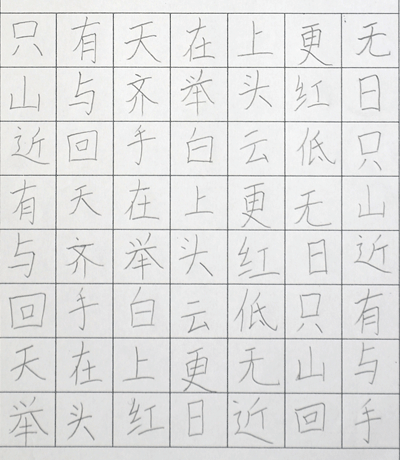 只有天在上更无
山与齐举头红日
近回手白云低只
有天在上更无山
与齐举头红日近
回手白云低只有
天在上更无山与
举头红日近回手